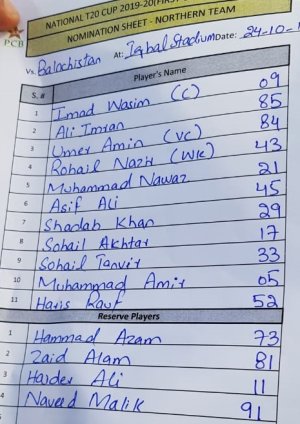 NATIONAL T20 CUP 2019-20(FIRST
NOMINATION SHEET - NORTHERN TEAM
PCB
Vs. Balochistan At: Iqbal Stadium Date: 24-10-1
S. # Player's Name
1 Imad Wasim (C) 09
2 Ali Imran 85
3 Umer Amin (VC) 84
4 Rohail Nazir (WK) 43
5 Muhammad Nawaz 21
6 Asif Ali 45
7 Shadab Khan 29
8 Sohail Akhtar 17
9 Sohail Tanvir 33
10 Muhammad Amir 05
11 Haris Rauf 52
Reserve Players
1 Hammad Azam 73
2 Zaid Alam 81
3 Haider Ali 11
4 Naveed Malik 91